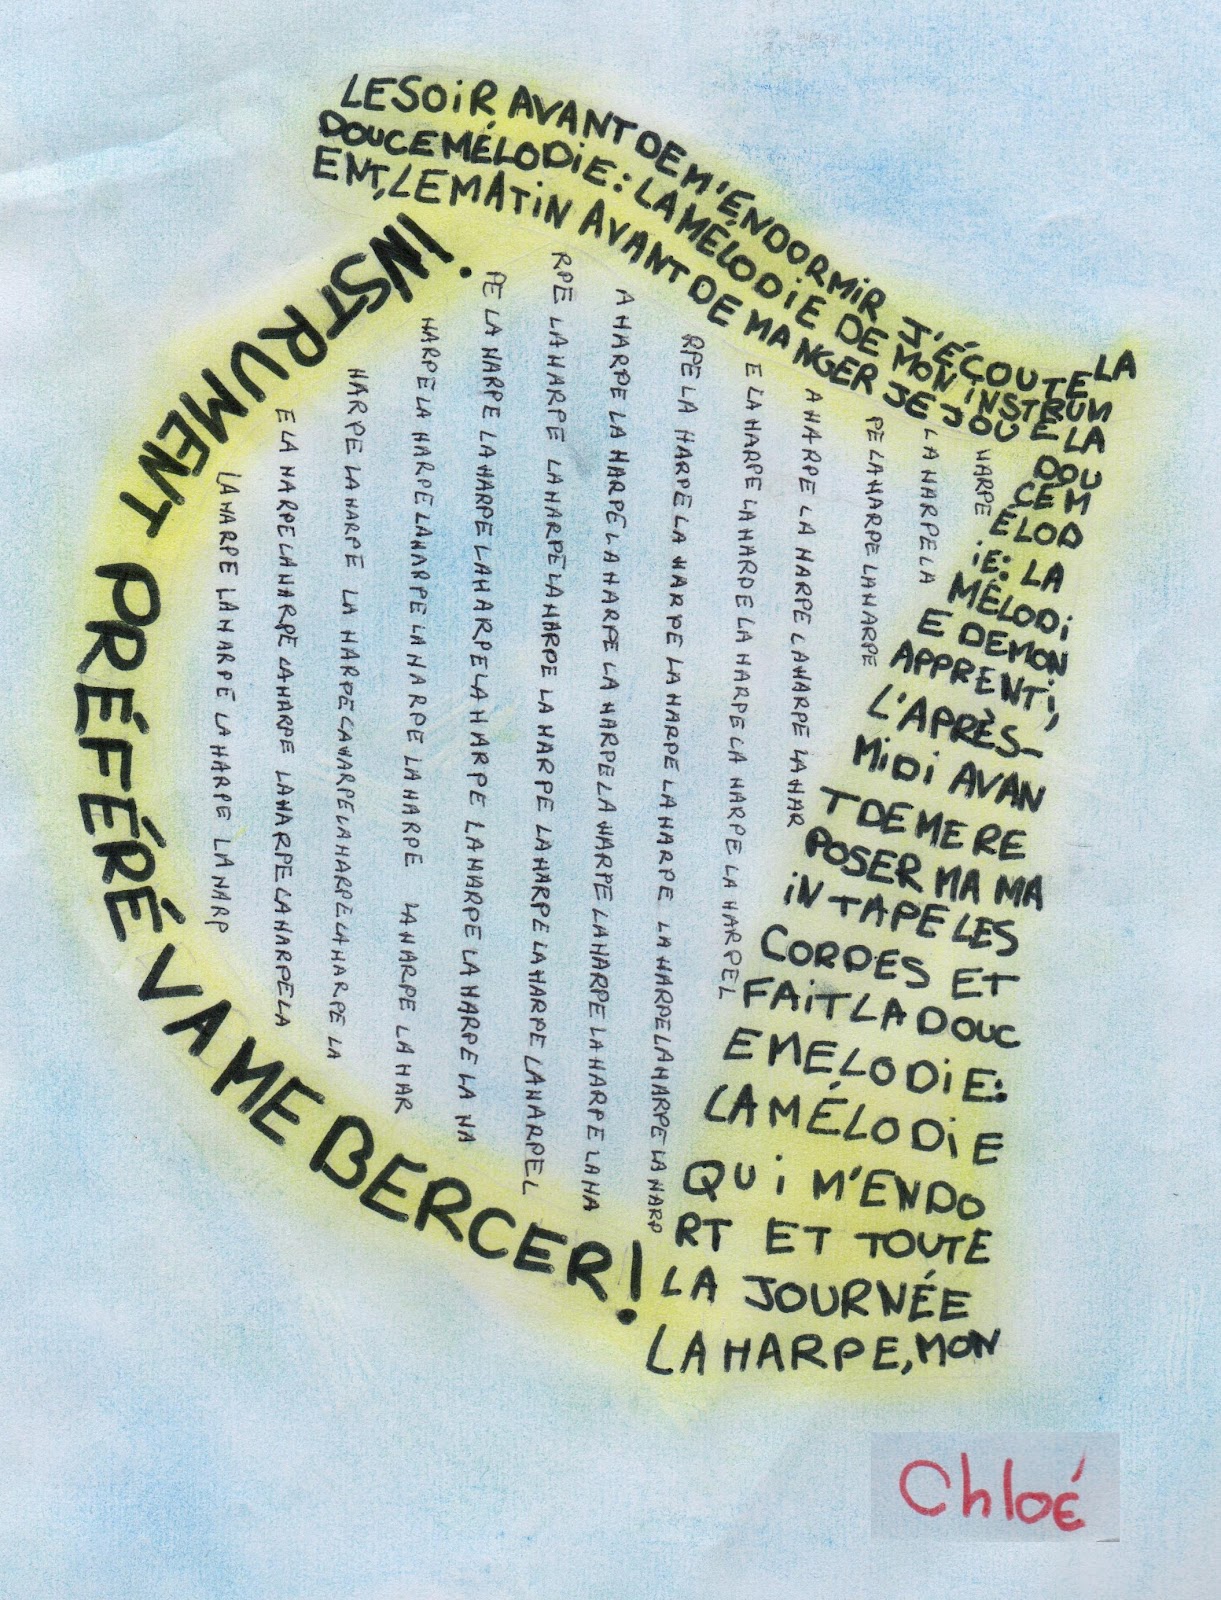 LE SOIR, AVANT DE M'ENDORMIR J'ÉCOUTE LA
DOUCE MÉLODIE: LA MÉLODIE DE MON INSTRUM
ENT, LE MATIN AVANT DE MANGER JE JOUE LA
DOU
CE M
ÉLOD
IE: LA
MÉLODI
E DE MON
APPRENTI,
L'APRÈS-
MIDI AVAN
T DE ME RE
POSER MA MA
IN TAPE LES
CORDES ET
FAIT LA DOUC
E MELODIE:
LA MÉLODIE
QUI M'ENDO
RT ET TOUTE
LA JOURNÉE
LA HARPE, MON
INSTRUMENT PRÉFÉRÉ VA ME BERCER!
LA HARPE LA HARPE LA HARPE LA HARP
E LA HARPE LA HARPE LA HARPE LA HARPE LA HARPE LA
HARPE LA HARPE LA HARPE LA HARPE LA HARPE LA HARPE LA
HARPE LA HARPE LA HARPE LA HARPE LA HARPE LA HARPE LA HAR
PE LA HARPE LA HARPE LA HARPE LA HARPE LA HARPE LA HARPE LA HA
RPE LA HARPE LA HARPE LA HARPE LA HARPE LA HARPE LA HARPE LA HARPEL
A HARPE LA HARPE LA HARPE LA HARPE LA HARPE LA HARPE LA HARPE LA HA
RPE LA HARPE LA HARPE LA HARPE LA HARPE LA HARPE LA HARPE LA HARP
E LA HARPE LA HARPE LA HARPE LA HARPE LA HARPEL
A HARPE LA HARPE LA HARPE LA HAR
PE LA HARPE LA HARPE
LA HARPE LA
HARPE
Chloé